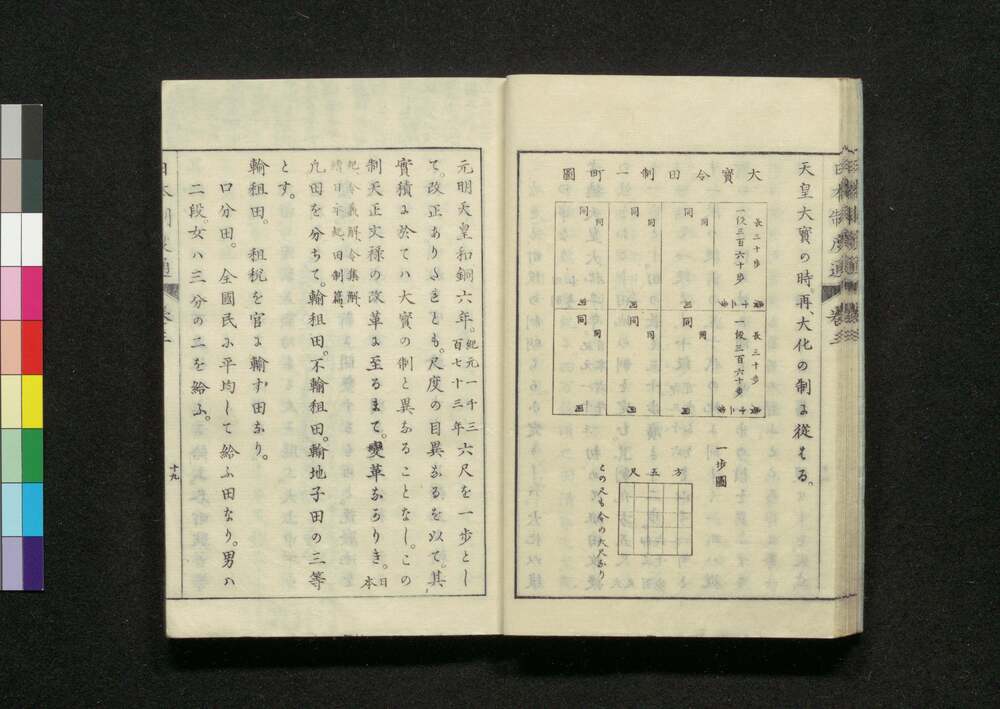 天皇大寶の時。再、大化の制に從はる。
大寶令田制一町圖
長三十歩
一段三百六十歩
廣十二歩
同
同
同
同
同
同
同
同
同
長三十歩
一段三百六十歩
廣十二歩
同
同
同
同
同
同
同
同
同
一歩圖
方五尺
この尺も今の大尺なり
元明天皇和銅六年。紀元一千三百七十三年六尺を一歩とし
て。改正ありしきとも。尺度の目異なるを以て。其
實積に於てハ大寶の制と異なることなし。この
制天正文禄の改革に至るまて。變革なかりき。日本
紀、令義解、令集解、
續日本紀、田制篇、
凡田を分ちて。輸租田。不輸租田。輸地子田の三等
とす。
輸租田。 租税を官に輸す田なり。
口分田。 全國民に平均して給ふ田なり。男ハ
二段。女ハ三分の二を給ふ。
十九